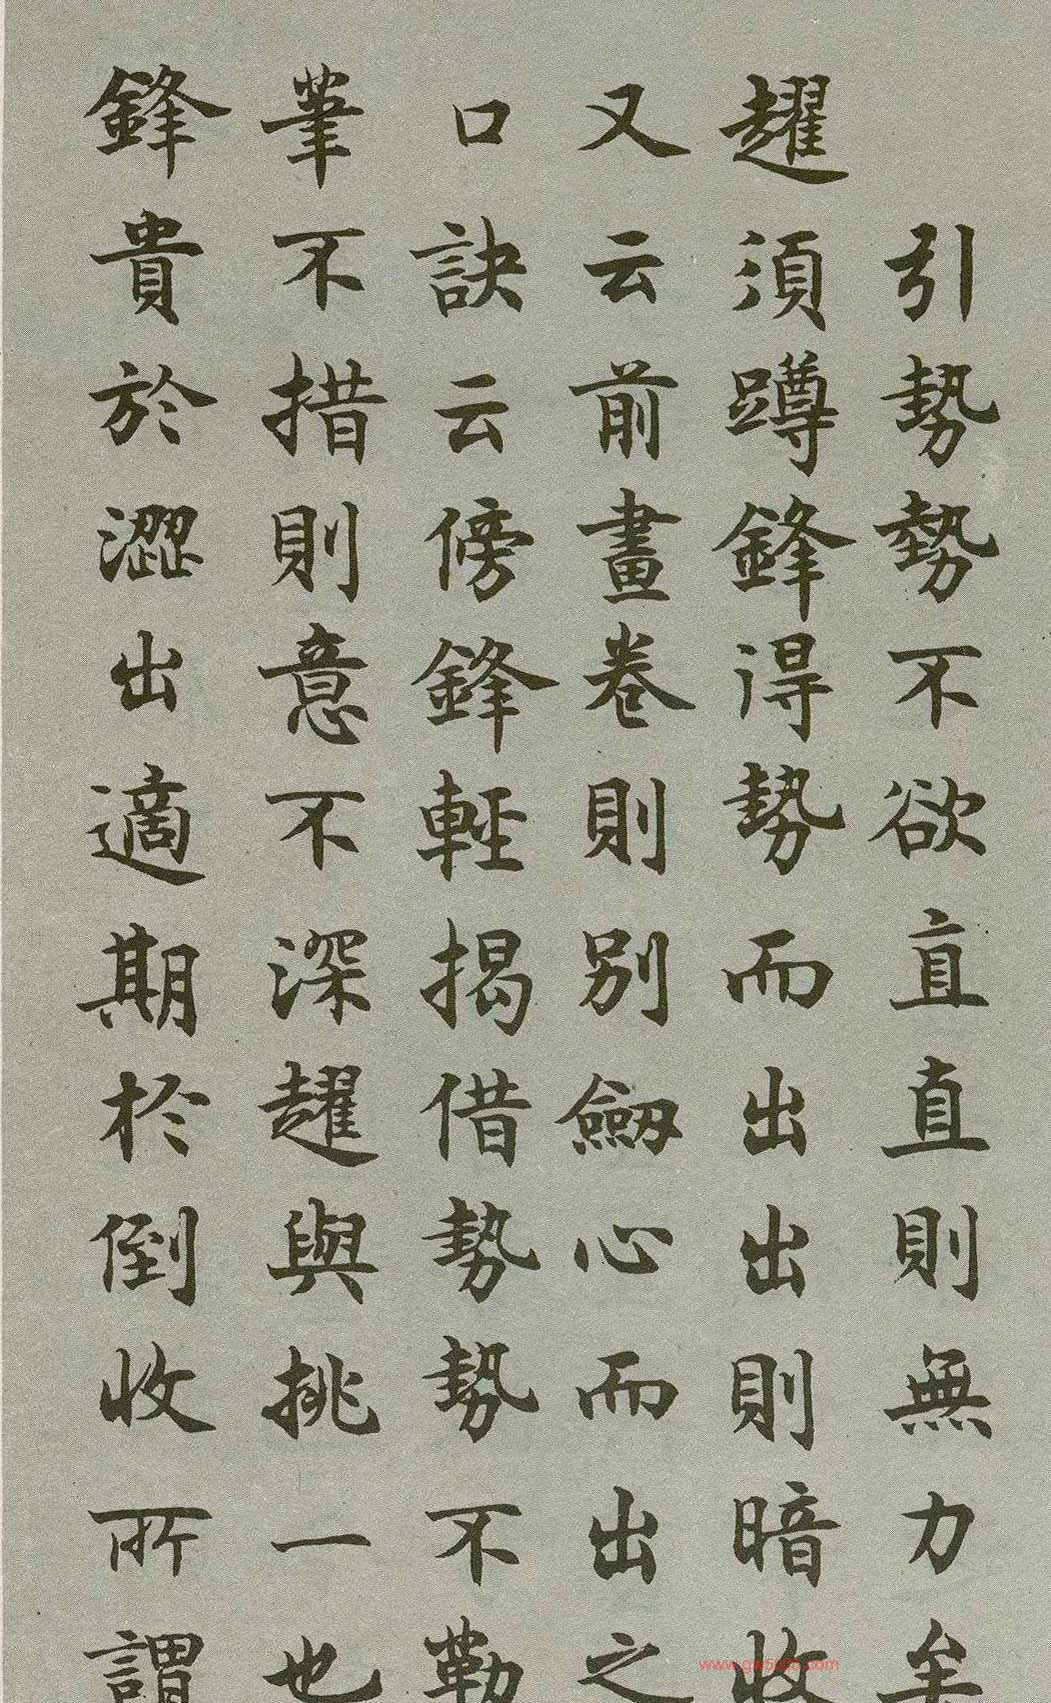 引勢勢不欲直直則無力矣
趯須蹲鋒得勢而出出則暗收
又云前畫卷則別劒心而出之
口訣云傍鋒輕揭借勢勢不勒
筆不措則意不深趯與挑一也
鋒貴於澀出適期於倒收所謂